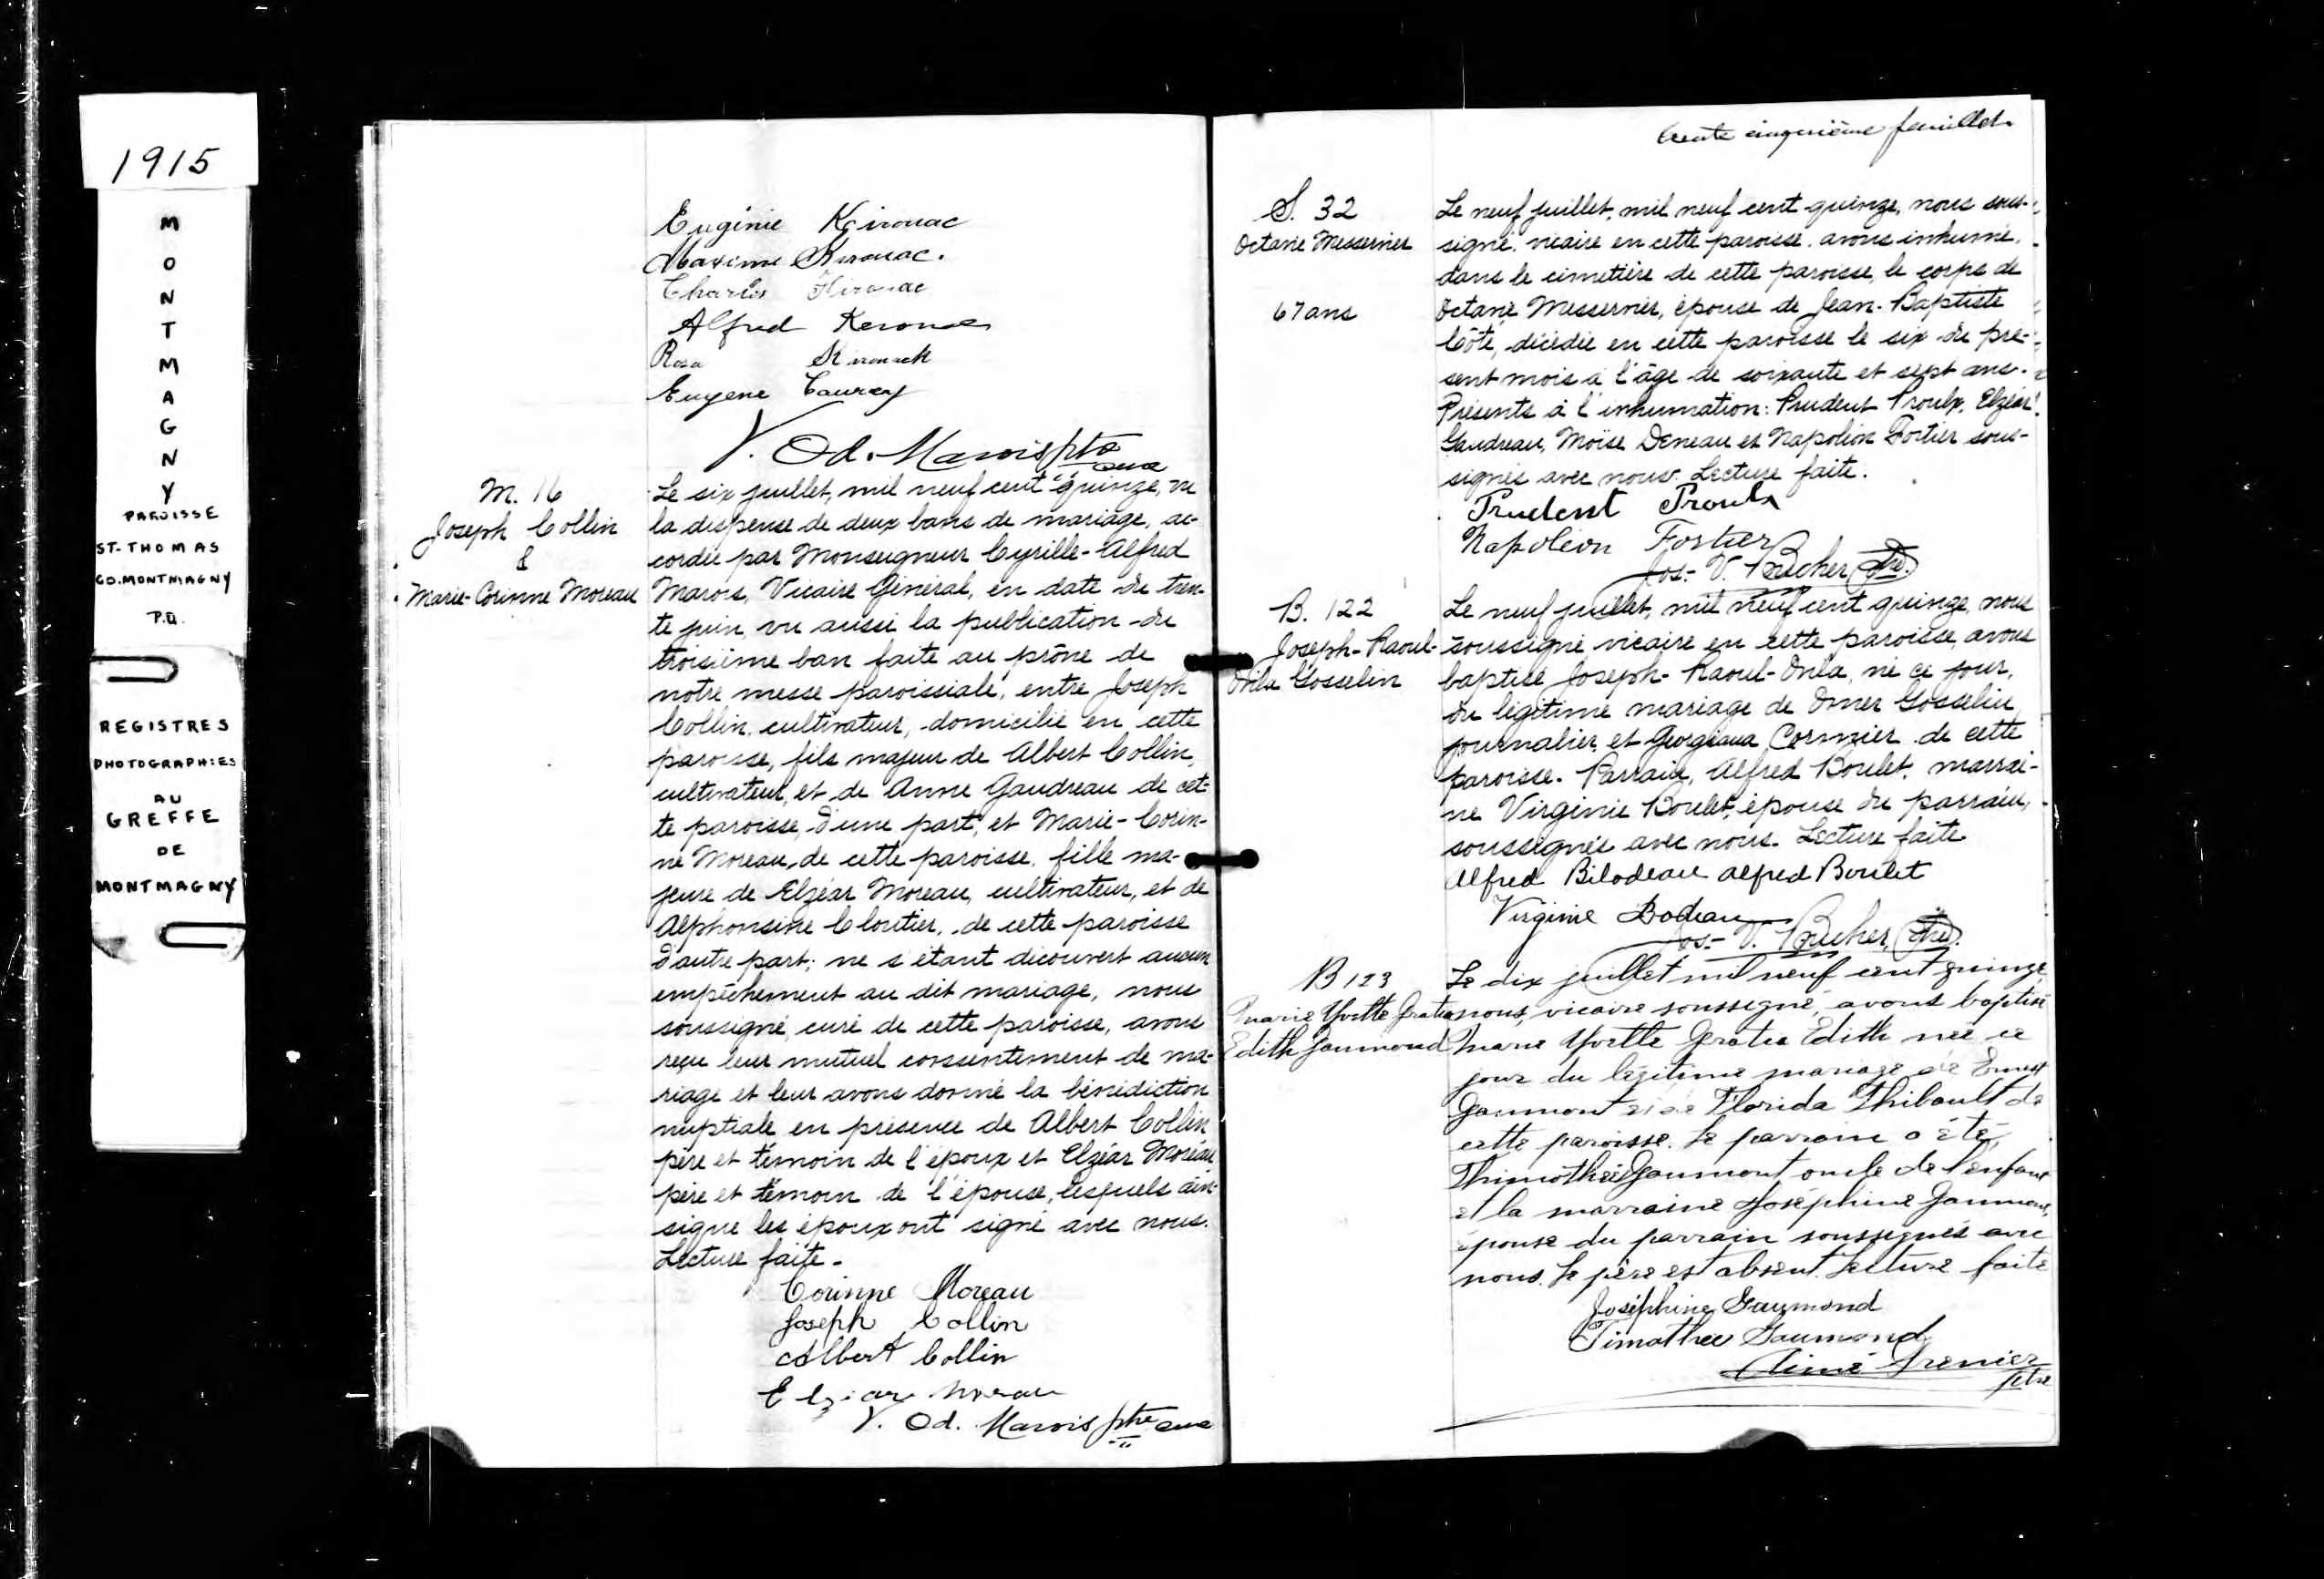 1915
MONTMAGNY
PAROISSE
ST-THOMAS
CO. MONTMAGNY
P.Q.
REGISTRES
PHOTOGRAPHIES
AU
GREFFE
DE
MONTMAGNY
Eugénie Kirouac
Maxime Kirouac.
Charles Kirouac
Alfred
Rosa Kirouack
Eugene
V. Od. Marois ptre
curé
M. 16
Joseph Collin
&
Marie-Corinne Moreau
Le six juillet, mil neuf cent quinze, vu
la dispense de deux bans de mariage, ac-
cordée par Monseigneur Cyrille-Alfred
Marois, Vicaire Général, en date du tren-
te juin, vu aussi la publication du
troisième ban faite au prône de
notre messe paroissiale, entre Joseph
Collin, cultivateur, domicilié en cette
paroisse, fils majeur de Albert Collin,
cultivateur, et de Anne Gaudreau de cet-
te paroisse, d'une part, et Marie-Corin-
ne Moreau, de cette paroisse, fille ma-
jeure de Elzéar Moreau, cultivateur, et de
Alphonsine Cloutier, de cette paroisse
d'autre part; ne s'étant découvert aucun
empêchement au dit mariage, nous
soussigné, curé de cette paroisse, avons
reçu leur mutuel consentement de ma-
riage et leur avons donné la bénédiction
nuptiale en présence de Albert Collin
père et témoin de l'époux et Elzéar Moreau
père et témoin de l'épouse, lesquels ain-
si que les époux ont signé avec nous.
Lecture faite.
Corinne Moreau
Joseph Collin
Albert Collin
Elzear Moreau
V. Od. Marois ptre curé
trente cinquième feuillet.
S. 32
Octavie Messervier
67 ans
Le neuf juillet, mil neuf cent quinze, nous sous-
signé, vicaire en cette paroisse, avons inhumé,
dans le cimetière de cette paroisse, le corps de
Octavie Messervier, épouse de Jean-Baptiste
Côté, décédée en cette paroisse le six du pré-
sent mois à l'âge de soixante et sept ans.
Présents à l'inhumation: Prudent Proulx, Elzéar
Gaudreau, Moïse Deneau et Napoléon Fortier sous-
signés avec nous. Lecture faite.
Prudent Proulx
Napoléon Fortier
Jos.-V. Bucher Ptre.
B. 122
Joseph-Raoul-
Ovila Gosselin
Le neuf juillet, mil neuf cent quinze, nous
soussigné vicaire en cette paroisse, avons
baptisé Joseph-Raoul-Ovila, né ce jour,
du légitime mariage de Omer Gosselin,
journalier, et Georgianna Cormier de cette
paroisse. Parrain, Alfred Boulet, marrai-
ne Virginie Boulet, épouse du parrain,
soussignés avec nous. Lecture faite
Alfred Bilodeau Alfred Boulet
Virginie
Jos.-V. Bucher, Ptre.
B 123
Marie Yvette Gratia
Edith Gaumond
Le dix juillet mil neuf cent quinze
nous, vicaire soussigné, avons baptisé
Marie Yvette Gratia Edith née ce
jour du légitime mariage de Ernest
Gaumont et de Florida Thibault de
cette paroisse. Le parrain a été,
Thimothée Gaumont oncle de l'enfant
et la marraine Joséphine Gaumont,
épouse du parrain soussignés avec
nous. Le père est absent. Lecture faite
Joséphine Gaumond
Timothee Gaumond
Aimé Grenier
ptre